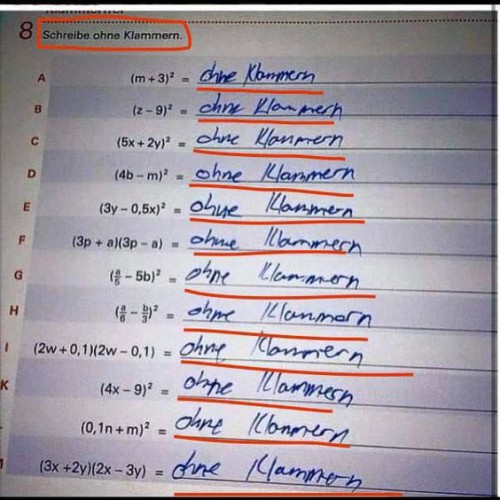 8 Schreibe ohne Klammern.
A (m + 3)² = ohne Klammern
B (z – 9)² = ohne Klammern
C (5x + 2y)² = ohne Klammern
D (4b – m)² = ohne Klammern
E (3y – 0,5x)² = ohne Klammern
F (3p + a)(3p – a) = ohne Klammern
G (a/5 – 5b)² = ohne Klammern
H (a/6 – b/3)² = ohne Klammern
I (2w + 0,1)(2w – 0,1) = ohne Klammern
K (4x – 9)² = ohne Klammern
(0,1n + m)² = ohne Klammern
(3x +2y)(2x – 3y) = ohne Klammern